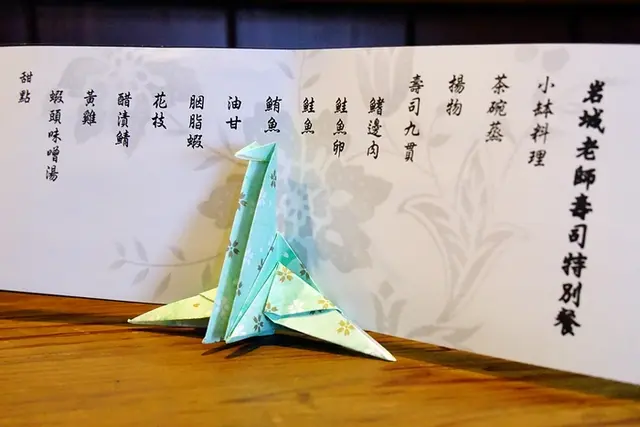 岩城老師壽司特別餐
小缽料理
茶碗蒸
揚物
壽司九貫
鰭邊肉
鮭魚卵
鮭魚
鮪魚
油甘
胭脂蝦
花枝
醋漬鯖
黃雞
蝦頭味噌湯
甜點